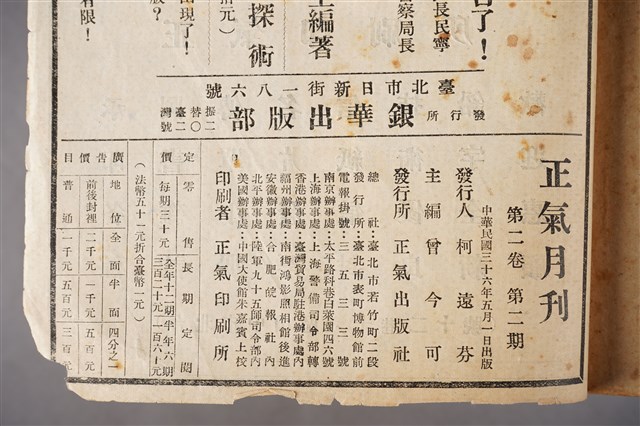 告了！
長民寧
察局長
主編著
探術
拾元）
出現了！
版？
有限！
臺北市日新街一八六號
發行所
銀華出版部
振替臺灣
二〇二號
正氣月刊
第二卷 第二期
中華民國三十六年五月一日出版
發行人 柯遠芬
主編 曾今可
發行所 正氣出版社
總社：臺北市若竹町二段
發行所：臺北市表町博物館前
電報掛號：三五三三號
南京辦事處：太平路科巷白菜園四六號
上海辦事處：上海警備司令部轉
香港辦事處：臺灣貿易局駐港辦事處內
福州辦事處：南街鴻影照相館後進
安徽辦事處：合肥皖報社內
北平辦事處：陸軍九十五師司令部內
美國辦事處：中國大使館朱嘉賓上校
印刷者 正氣印刷所
定價
零售 每期三十元
長期定閱
全年十二期 三百二十元
半年六期 一百六十元
（法幣五十一元折合臺幣一元）
廣告價目
地位 全面 半面 四分之一
前後封裡 二千元 一千元 五百元
普通 一千元 五百元 三百元